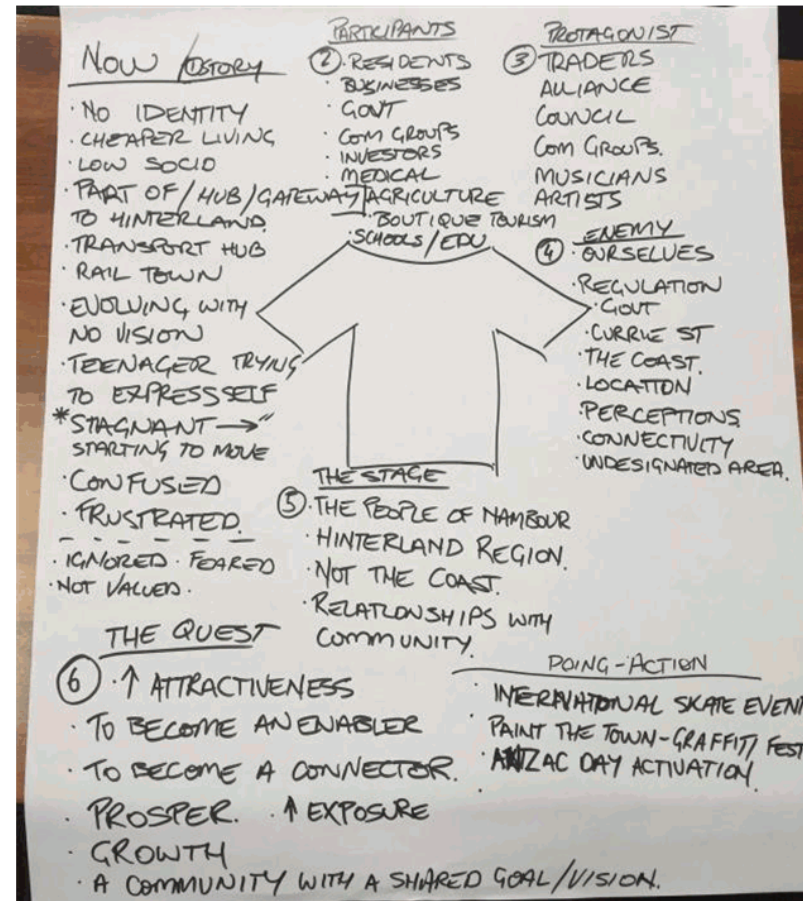 NOW /OSTORY
· NO IDENTITY
· CHEAPER LIVING
· LOW SOCIO
· PART OF / HUB / GATEWAY
TO HINTERLAND.
· TRANSPORT HUB
· RAIL TOWN
· EVOLVING WITH
NO VISION
· TEENAGER TRYING
TO EXPRESS SELF
* STAGNANT →"
STARTING TO MOVE
· CONFUSED
· FRUSTRATED.
· IGNORED · FEARED
· NOT VALUED.
PARTICIPANTS
② · RESIDENTS
· BUSINESSES
· GOVT
· COM GROUPS
· INVESTORS
· MEDICAL
AGRICULTURE
· BOUTIQUE TOURISM
· SCHOOLS / EDU
PROTAGONIST
③ TRADERS
ALLIANCE
COUNCIL
COM GROUPS.
MUSICIANS
ARTISTS
ENEMY
④ · OURSELVES
· REGULATION
· GOVT
· CURRIE ST
· THE COAST.
· LOCATION
· PERCEPTIONS
· CONNECTIVITY
· UNDESIGNATED AREA.
THE STAGE
⑤ · THE PEOPLE OF NAMBOUR
· HINTERLAND REGION.
· NOT THE COAST.
· RELATIONSHIPS WITH
COMMUNITY.
THE QUEST
⑥ · ↑ ATTRACTIVENESS
· TO BECOME AN ENABLER
· TO BECOME A CONNECTOR.
· PROSPER. · ↑ EXPOSURE
· GROWTH
· A COMMUNITY WITH A SHARED GOAL/VISION.
DOING-ACTION
· INTERNATIONAL SKATE EVENT
· PAINT THE TOWN-GRAFFITI FEST
· ANZAC DAY ACTIVATION